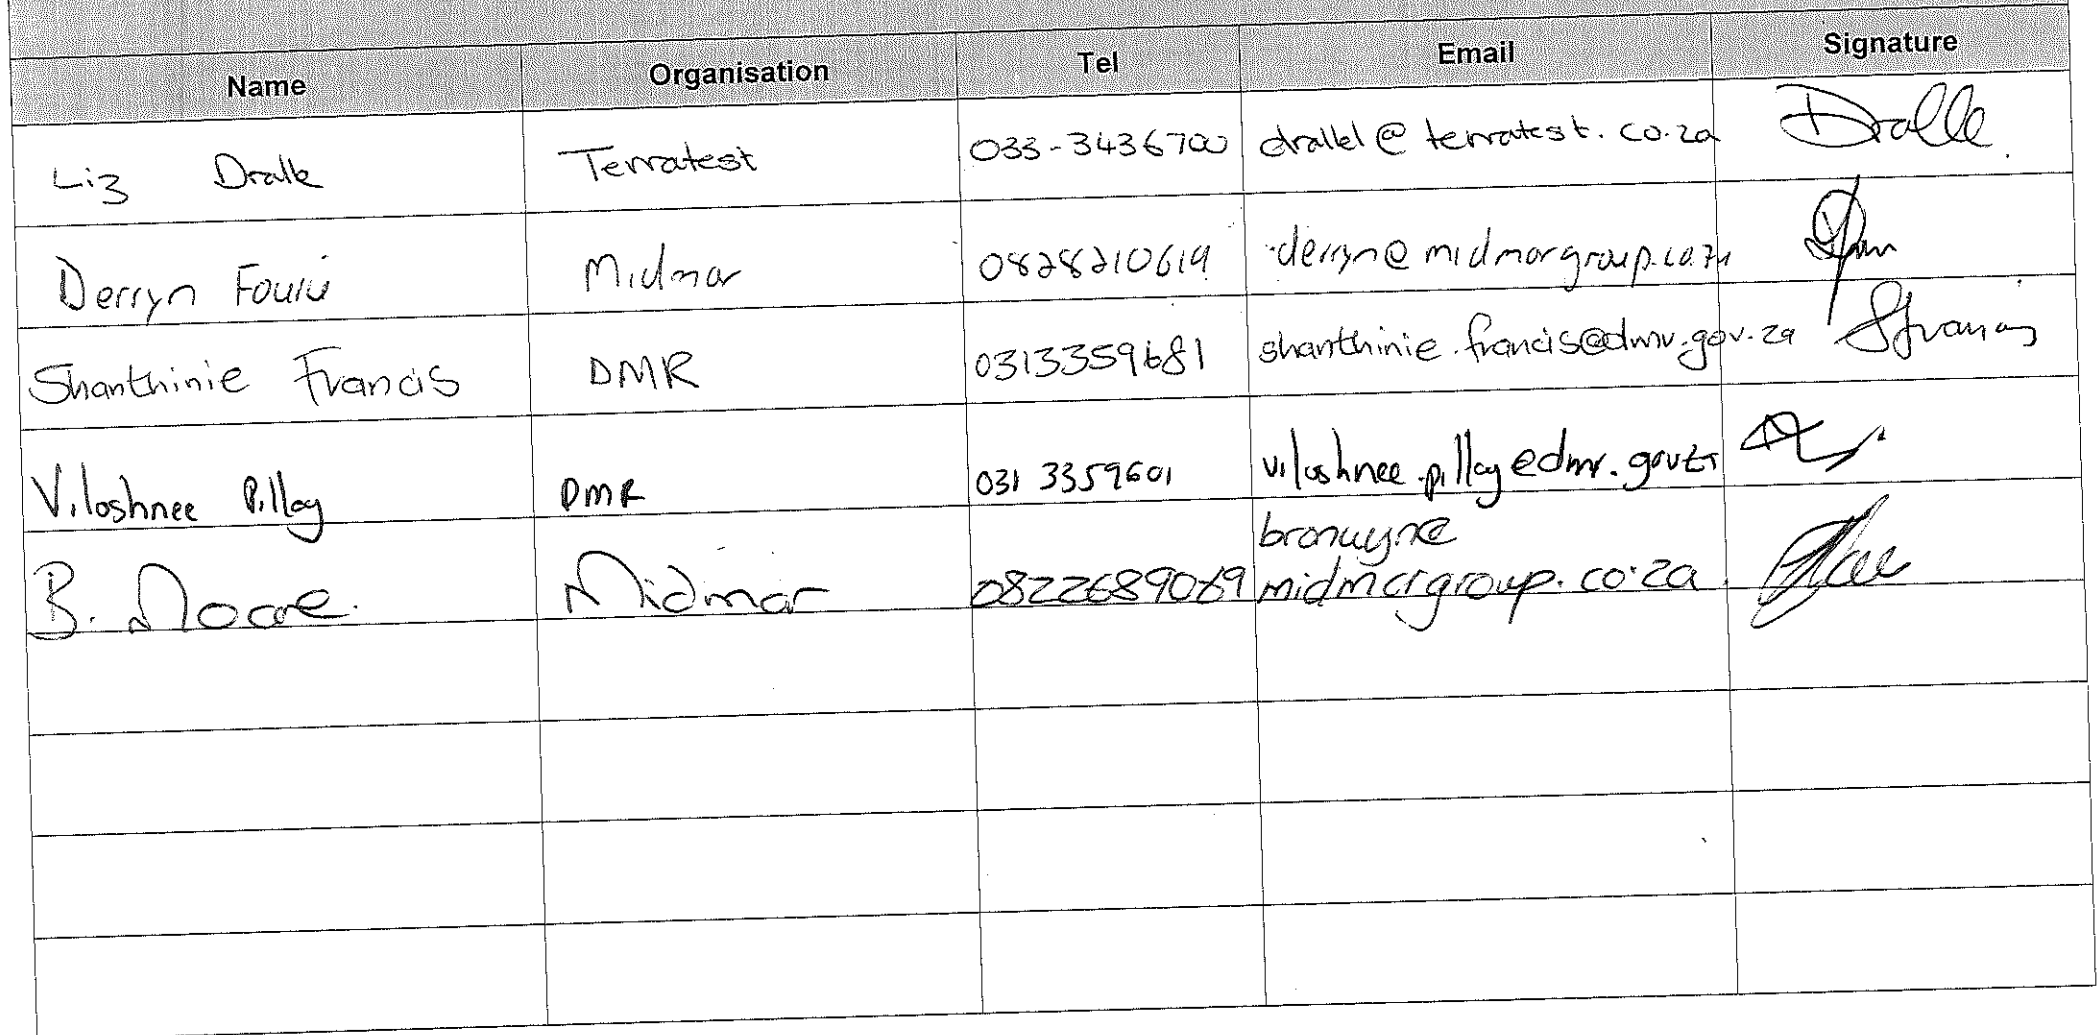 Name Organisation Tel Email Signature
Liz Dralle Terratest 033-3436700 drallel@terratest.co.za Dralle.
Derryn Fourie Midmar 0828210619 derryn@midmargroup.co.za
Shanthinie Francis DMR 0313359681 shanthinie.francis@dmr.gov.za SFrancis
Viloshnee Pillay DMR 031 3359601 viloshnee.pillay@dmr.gov.za
bronwyn@
B. Moore. Midmar 0822689069 midmargroup.co.za